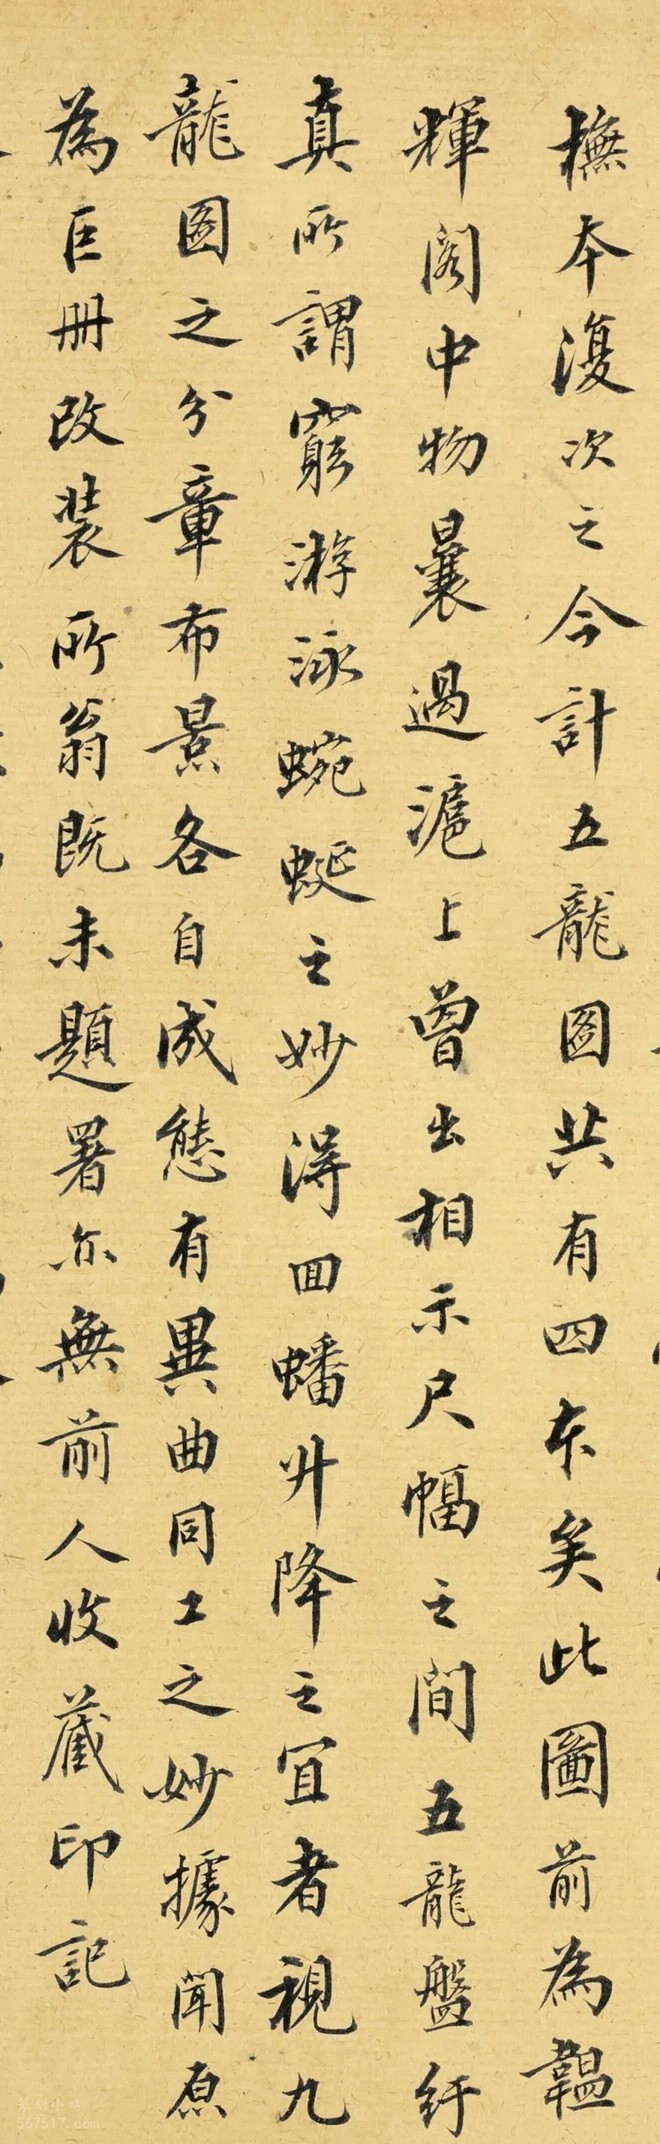 橅本復次之今計五龍圖共有四本矣此圖前為韞
輝閣中物曩過滬上曾出相示尺幅之間五龍盤紆
真所謂窮游泳蜿蜒之妙得回蟠升降之宜者視九
龍圖之分章布景各自成態有異曲同工之妙據聞原
為巨册改裝所翁既未題署亦無前人收藏印記
567517.com